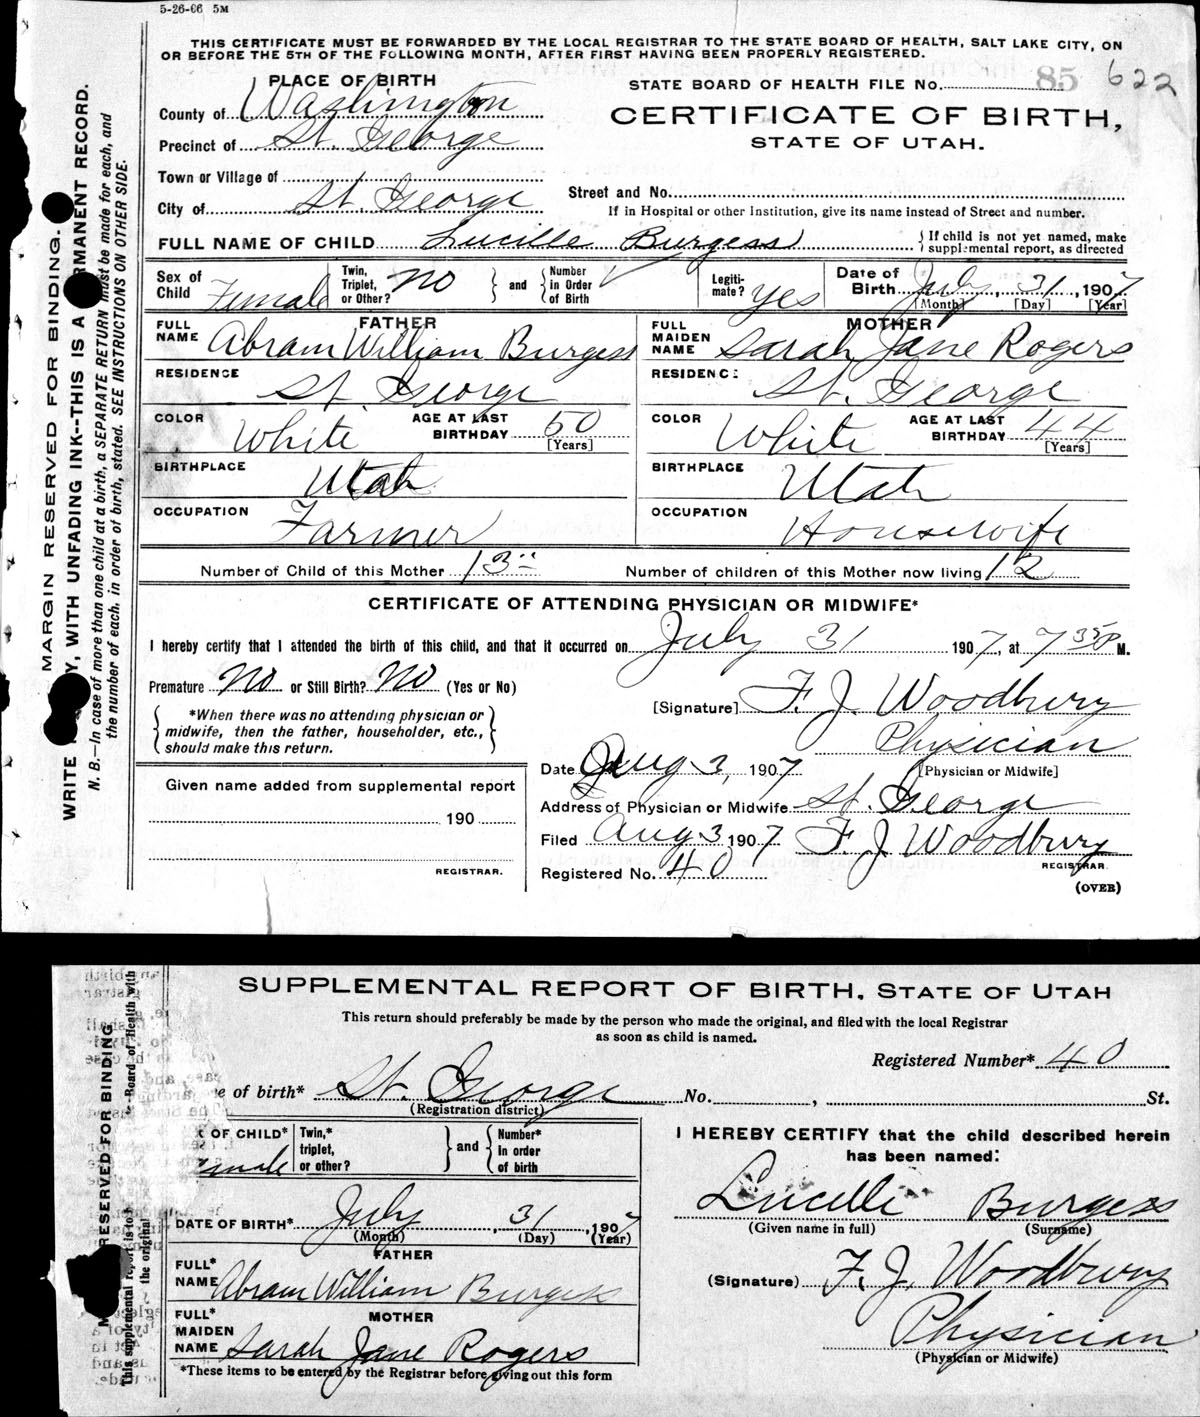 5-26-06 5M
THIS CERTIFICATE MUST BE FORWARDED BY THE LOCAL REGISTRAR TO THE STATE BOARD OF HEALTH, SALT LAKE CITY, ON
OR BEFORE THE 5TH OF THE FOLLOWING MONTH, AFTER FIRST HAVING BEEN PROPERLY REGISTERED.
PLACE OF BIRTH
STATE BOARD OF HEALTH FILE No. 85 622
County of Washington
CERTIFICATE OF BIRTH,
STATE OF UTAH.
Precinct of St. George
Town or Village of
Street and No.
City of St. George
If in Hospital or other Institution, give its name instead of Street and number.
FULL NAME OF CHILD Lucille Burgess { If child is not yet named, make supplemental report, as directed
Sex of Child Female Twin, Triplet, or Other? No } and { Number in Order of Birth Legiti-mate? yes Date of Birth July 31, 1907
[Month] [Day] [Year]
FATHER
MOTHER
FULL NAME Abram William Burgess
FULL MAIDEN NAME Sarah Jane Rogers
RESIDENCE St George
RESIDENCE St. George
COLOR White AGE AT LAST BIRTHDAY 50 [Years]
COLOR White AGE AT LAST BIRTHDAY 44 [Years]
BIRTHPLACE Utah
BIRTHPLACE Utah
OCCUPATION Farmer
OCCUPATION Housewife
Number of Child of this Mother 13
Number of children of this Mother now living 12
CERTIFICATE OF ATTENDING PHYSICIAN OR MIDWIFE*
I hereby certify that I attended the birth of this child, and that it occurred on July 31 1907, at 7 35 P M.
Premature No or Still Birth? No (Yes or No)
[Signature] F. J. Woodbury
*When there was no attending physician or
midwife, then the father, householder, etc.,
should make this return.
Physician
[Physician or Midwife]
Date Aug 3, 1907
Given name added from supplemental report
190
REGISTRAR.
Address of Physician or Midwife St. George
Filed Aug 3 1907 F. J. Woodbury
REGISTRAR.
Registered No. 40
(OVER)
MARGIN RESERVED FOR BINDING.
WRITE Y, WITH UNFADING INK--THIS IS A RMANENT RECORD.
N. B.—In case of more than one child at a birth, a SEPARATE RETURN must be made for each, and
the number of each, in order of birth, stated. SEE INSTRUCTIONS ON OTHER SIDE.
SUPPLEMENTAL REPORT OF BIRTH, STATE OF UTAH
This return should preferably be made by the person who made the original, and filed with the local Registrar
as soon as child is named.
Registered Number* 40
e of birth* St. George No. , St.
(Registration district)
OF CHILD* Female Twin,* triplet, or other? } and { Number* in order of birth
I HEREBY CERTIFY that the child described herein
has been named:
Lucille Burgess
(Given name in full) (Surname)
DATE OF BIRTH* July, 31, 1907
(Month) (Day) (Year)
FATHER
FULL* NAME Abram William Burgess
(Signature) F. J. Woodbury
MOTHER
FULL* MAIDEN NAME Sarah Jane Rogers
Physician
(Physician or Midwife)
*These items to be entered by the Registrar before giving out this form
RESERVED FOR BINDING
This supplemental report is to
Board of Health with
the original